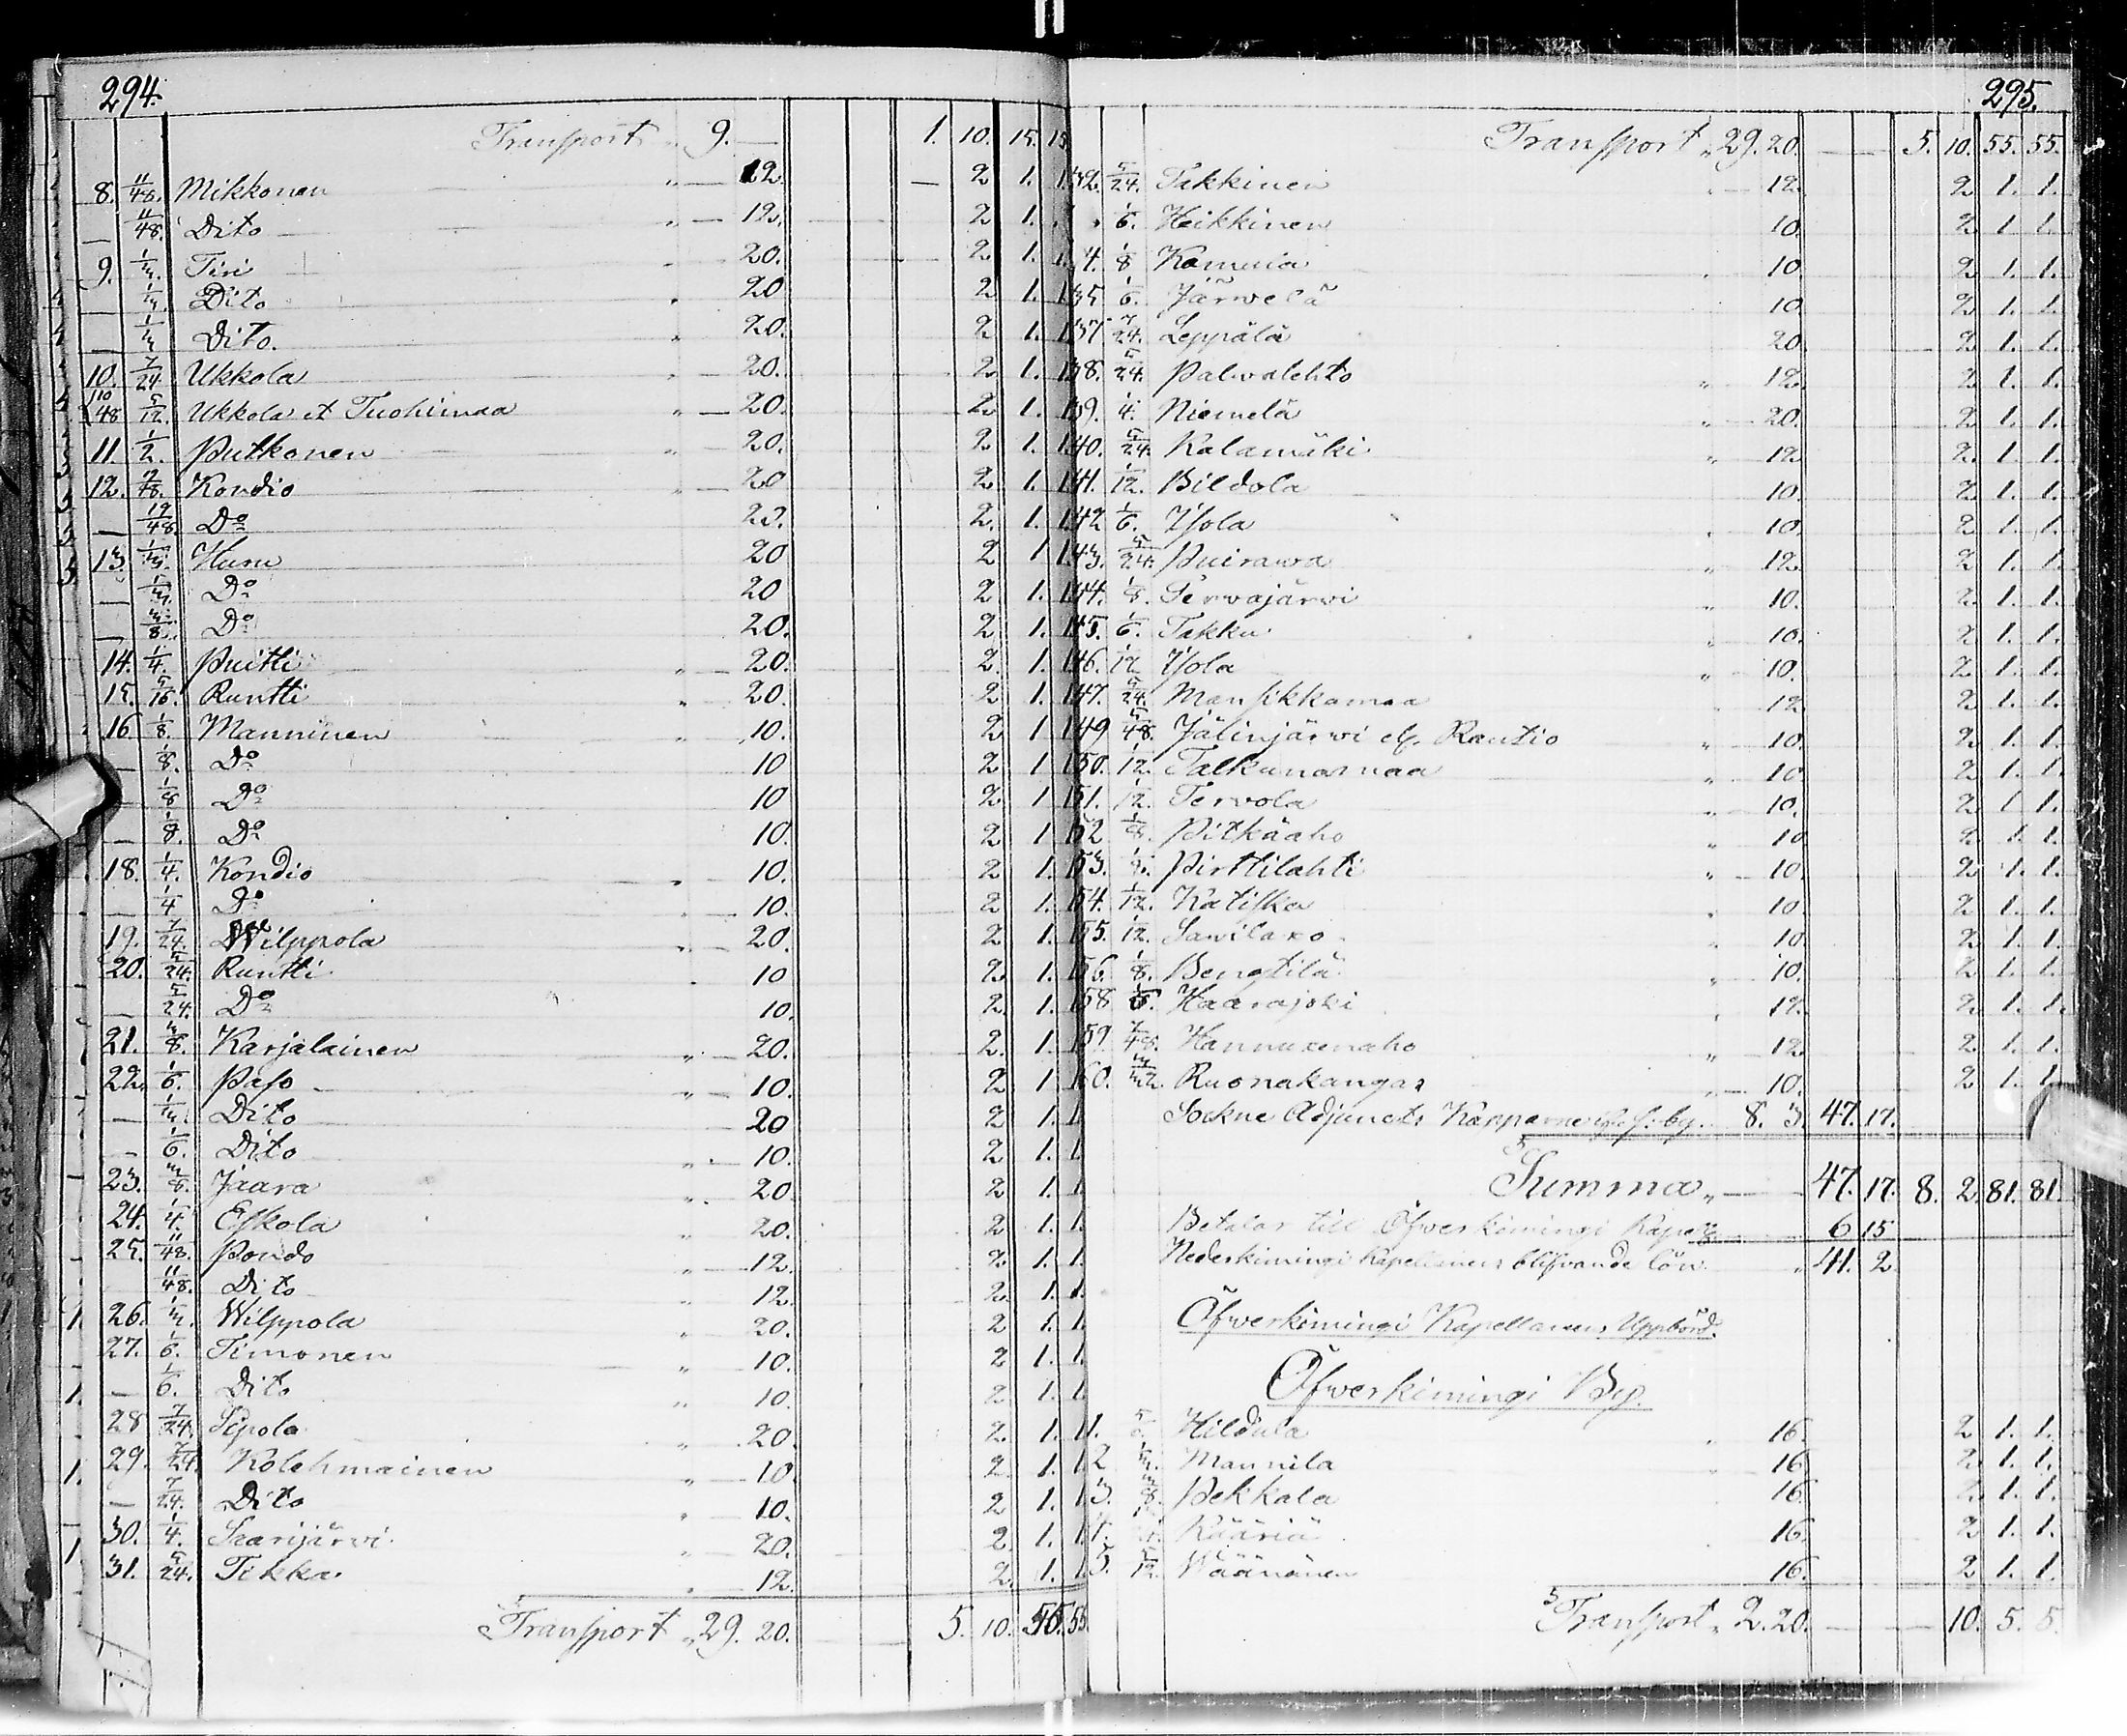 294.
Transport " 9. — 1. 10. 15. 15.
8. 11/48. Mikkonen " — 12. — 2 1. 1.
— 11/48. Dito " — 12. 2 1.
9. 1/3. Tiri 20. 2 1. 1.
— 1/3. Dito 20 2 1. 1.
— 1/3 Dito. 20. 2 1. 1.
10. 7/24 Ukkola " — 20. 2 1. 1.
10/48 5/12. Ukkola et Tuohimaa " — 20. 2 1. 1.
11. 1/2. Putkonen " — 20. 2 1. 1.
12. Kondio " — 20 2. 1. 1.
— 19/48. Do 20. 2. 1. 1.
13. 1/3. Huru 20 2 1 1.
— 1/3. Do 20 2 1. 1.
— 3/8. Do 20. 2 1. 1.
14. 1/4. Puitti " — 20. 2. 1. 1.
15. 5/16. Runtti " 20. 2 1. 1.
16. 1/8. Manninen " 10. 2 1 1
— 1/8. Do 10 2 1 1
— 1/8 Do 10 2 1 1
— 1/8. Do 10. 2 1 1
18. 1/4. Kondio 10. 2 1. 1
— 1/4 Do 10. 2 1. 1
19. 7/24. Wilppola " — 20. 2 1. 1
20. 5/24. Runtti 10 2 1. 1
— 5/24. Do 10. 2. 1. 1
21. 3/8. Karjalainen " — 20. 2. 1. 1
22. 1/6. Paso " — 10. 2 1 1
— 1/3. Dito 20 2 1. 1.
— 1/6. Dito " — 10. 2 1. 1.
23. 3/8. Jaara " 20 2. 1. 1.
24. 1/4. Eskola " 20. 2 1. 1.
25. 11/48. Pondo " — 12. 2 1. 1.
11/48. Dito " 12. 2. 1. 1.
26. 1/3. Wilppola " 20. 2 1. 1.
27. 1/6. Timonen " 10. 2 1. 1.
— 1/6. Dito " 10. 2 1. 1
28 7/24. Sipola " 20. 2. 1. 1
29. 7/24. Kolehmainen " — 10 2. 1. 1
— 7/24. Dito " 10. 2 1. 1
30. 1/4. Saarijärvi " 20. 2. 1. 1
31. 5/24. Tikka " 12 2. 1. 1
Transport " 29. 20. 5. 10. 55. 55
295.
Transport " 29. 20. — 5. 10. 55. 55.
32. 5/24. Takkinen 12. 2 1. 1.
1/6. Heikkinen 10. 2 1 1.
4. 1/8 Kamula 10 2 1. 1.
35 1/6. Järwelä 10. 2 1. 1.
37 7/24. Leppälä 20 2 1. 1.
38. 5/24. Palwalehto " 12 2 1. 1.
39. 1/4. Niemelä " — 20. 2 1. 1.
40. 5/24. Kalamäki " 12 2. 1. 1.
41. 1/12. Bildola 10. 2 1. 1.
42 1/6. Ysola 10. 2 1. 1.
43. 5/24. Puirawa " — 12. 2 1. 1.
44. 1/8. Terwajärwi " 10. 2. 1. 1.
45. 1/6. Takku " 10. 2 1. 1.
46. 1/12 Ysola " 10. 2 1. 1.
47. 5/24. Mansikkamaa 12 2. 1. 1.
49 5/48. Jälinjärwi el. Rautio " 10. 2. 1. 1.
50. 1/12. Talkunasmaa " 10 2 1. 1.
51. 1/12. Tervola " 10. 2 1 1.
52 1/8. Pitkäaho " 10 2. 1. 1.
53. 1/8. Pirttilahti " 10. 2 1. 1.
54. 1/12. Katiska 10 2 1. 1.
55. 1/12. Sawilaxo " 10. 2 1. 1.
56. 1/8. Bengtilä " 10. 2 1. 1.
58 1/6. Haarajoki 12. 2 1. 1.
59 7/48. Hannuxenaho " 12 2. 1. 1.
60. Ruonakangas — 10. 2 1. 1.
Sockne Adjuncts Kapparne by. 8. 3. 47. 17.
Summa " — 47. 17. 8. 2. 81. 81.
Betalar till Öfwerkimingi Kapell: 6 15
Nederkimingi Kapellanens blifvande lön " 41. 2
Öfwerkimingi Kapellanens Uppbörd.
Öfwerkimingi By.
1. Hildula 16. 2 1. 1.
2 1/3. Mannila 16 2. 1. 1.
3. 3/8. Pekkala 16. 2. 1. 1.
4. Kääriä 16. 2 1. 1.
5. 5/12. Wäänänen 16. 2 1. 1.
Transport " 2. 20. — 10. 5. 5.